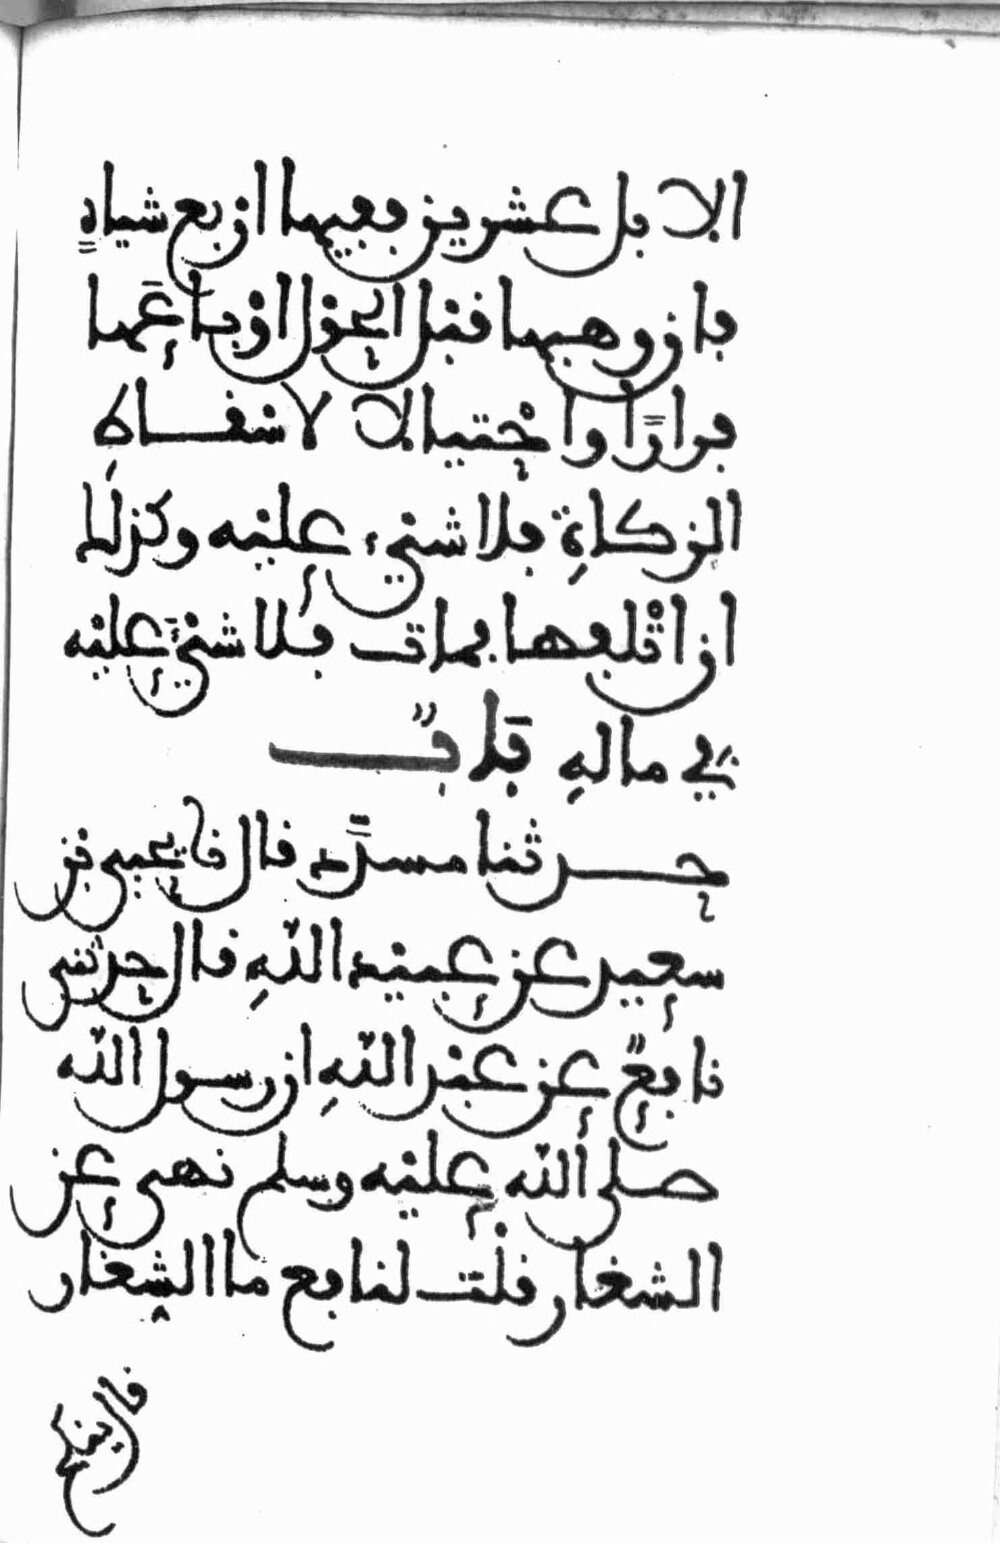 الابل عشرين ففيها اربع شياهٍ
فان وهبها قبل الحول او باعها
فرارًا واحتيالا لاسقاط
الزكاةِ فلا شيء عليه وكذلك
ان اتلفها فمات فلا شيءَ عليه
في مالهِ بابٌ
حدثنا مسدَّد قال نا يحيى بن
سعيد عن عبيد اللهِ قال حدثني
نافعٌ عن عبد اللهِ ان رسول الله
صلى الله عليه وسلم نهى عن
الشغار قلت لنافع ما الشغار
قال ينكح